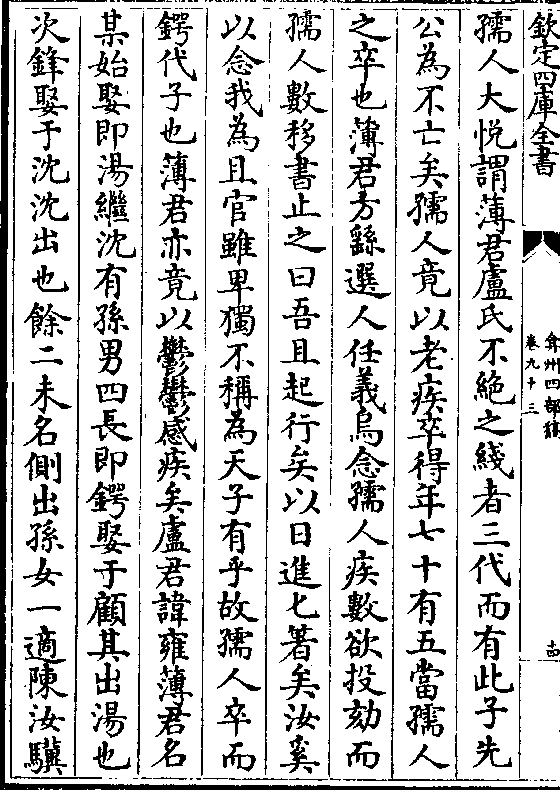 欽定四庫全書
弇州四部稿
卷九十三
十四
孺人大悅謂薄君盧氏不絶之綫者三代而有此子先
公為不亡矣孺人竟以老疾卒得年七十有五當孺人
之卒也薄君方繇選人任義烏念孺人疾數欲投劾而
孺人數移書止之曰吾且起行矣以日進七著矣汝奚
以念我為且官雖卑獨不稱為天子有乎故孺人卒而
鍔代子也薄君亦竟以鬱鬱感疾矣盧君諱雍薄君名
某始娶即湯繼沈有孫男四長即鍔娶于顧其出湯也
次鋒娶于沈沈出也餘二未名側出孫女一適陳汝驥